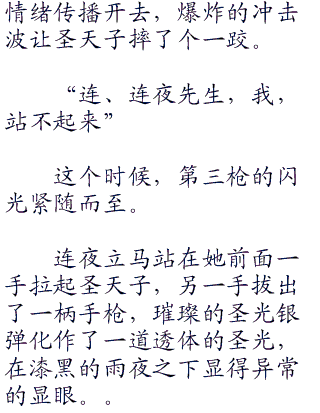 情绪传播开去，爆炸的冲击
波让圣天子摔了个一跤。
“连、连夜先生，我，
站不起来”
这个时候，第三枪的闪
光紧随而至。
连夜立马站在她前面一
手拉起圣天子，另一手拔出
了一柄手枪，璀璨的圣光银
弹化作了一道透体的圣光，
在漆黑的雨夜之下显得异常
的显眼。。